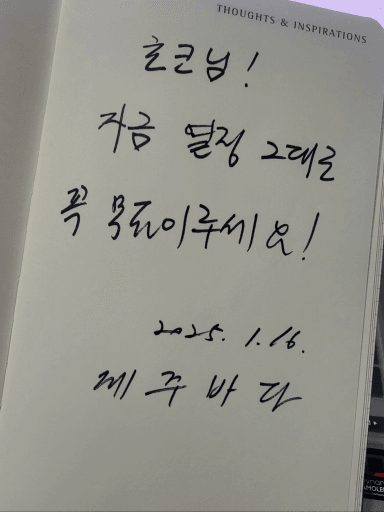 THOUGHTS & INSPIRATIONS
초코님!
지금 열정 그대로
꼭 목표이루세요!
2025. 1. 16.
제주바다